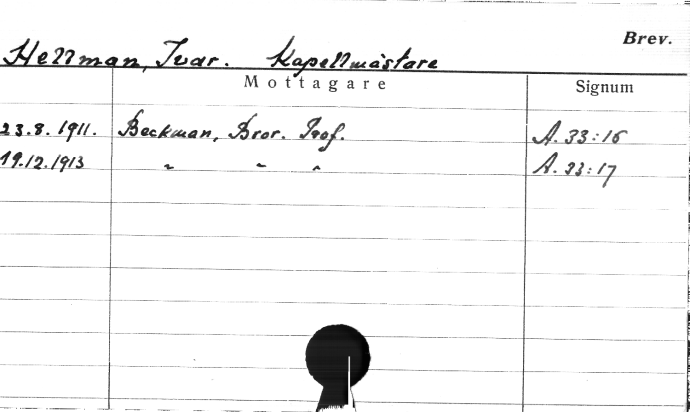 Brev.
Hellman, Ivar. Kapellmästare
Mottagare Signum
23.8.1911. Beckman, Bror. Prof. A. 33:16
19.12.1913 " " " A. 33:17